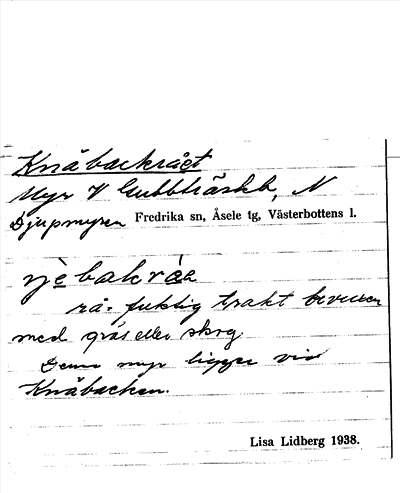 Knäbackrået
Myr V Gubbträskb, N
Djupmyren Fredrika sn, Åsele tg, Västerbottens l.
rå. fuktig trakt bevuxen
med gräs eller skog.
Denna myr ligger vid
Knäbacken.
Lisa Lidberg 1938.